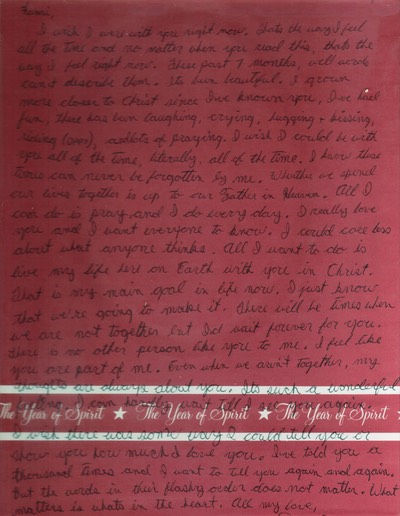 I wish I were with you right now. Thats the way I feel
all the time and no matter when you read this, thats the
way I feel right now. These past 7 months, well words
cant describe them. Its been beautiful. I grown
more closer to Christ since I've known you, I've had
fun, there has been laughing, crying, hugging + kissing,
(using laws), and lots of praying. I wish I could be with
you all of the time, literally, all of the time. I know these
times can never be forgotten by me. Whether we spend
our lives together is up to our Father in Heaven. All I
can do is pray and I do every day. I really love
you and I want everyone to know. I could care less
about what anyone thinks. All I want to do is
live my life here on Earth with you in Christ.
That is my main goal in life now. I just know
that we're going to make it. There will be times when
we are not together but I'd wait forever for you.
There is no other person like you to me. I feel like
you are part of me. Even when we arin't together, my
thoughts are always about you. Its such a wonderful
feeling, I can hardly tell again.
The Year of Spirit ★ The Year of Spirit ★ The Year of Spirit ★
I wish there was some way I could tell you or
show you how much I love you. I've told you a
thousand times and I want to tell you again and again.
But the words in their flashy order does not matter. What
matters is whats in the heart. All my love,